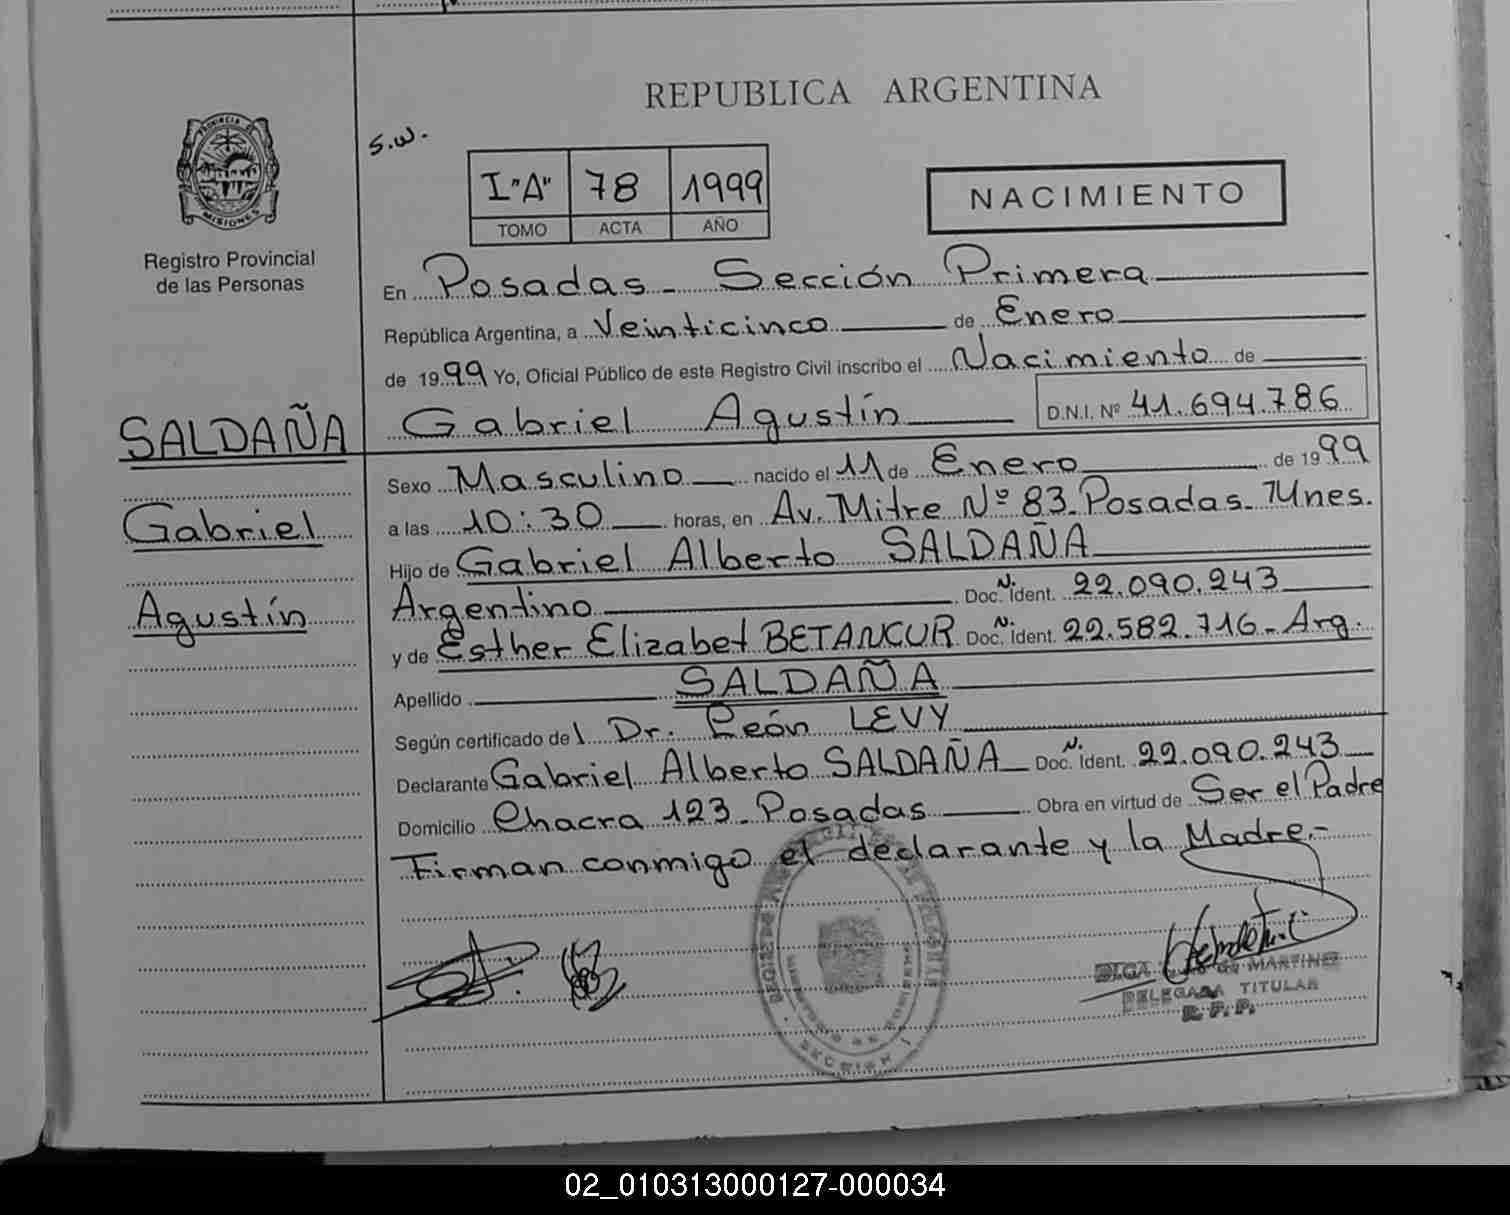 REPUBLICA ARGENTINA
S.W.
PROVINCIA DE
MISIONES
Registro Provincial
de las Personas
I "A" 78 1999
TOMO ACTA AÑO
NACIMIENTO
En Posadas - Sección Primera
República Argentina, a Veinticinco de Enero
de 1999 Yo, Oficial Público de este Registro Civil inscribo el Nacimiento de
Gabriel Agustín D.N.I. Nº 41.694.786
SALDAÑA
Gabriel
Agustín
Sexo Masculino nacido el 11 de Enero de 1999
a las 10:30 horas, en Av. Mitre Nº 83 - Posadas - Mnes.
Hijo de Gabriel Alberto SALDAÑA
Argentino Doc. N. Ident. 22.090.243
y de Esther Elizabet BETANCUR Doc. N. Ident. 22.582.716 - Arg.
Apellido SALDAÑA
Según certificado del Dr. León LEVY
Declarante Gabriel Alberto SALDAÑA Doc. N. Ident. 22.090.243
Domicilio Chacra 123 - Posadas Obra en virtud de Ser el Padre
Firman conmigo el declarante y la Madre.-
OLGA DE MARTINEZ
DELEGADA TITULAR
R. P. P.
SECCION 1
02_010313000127-000034